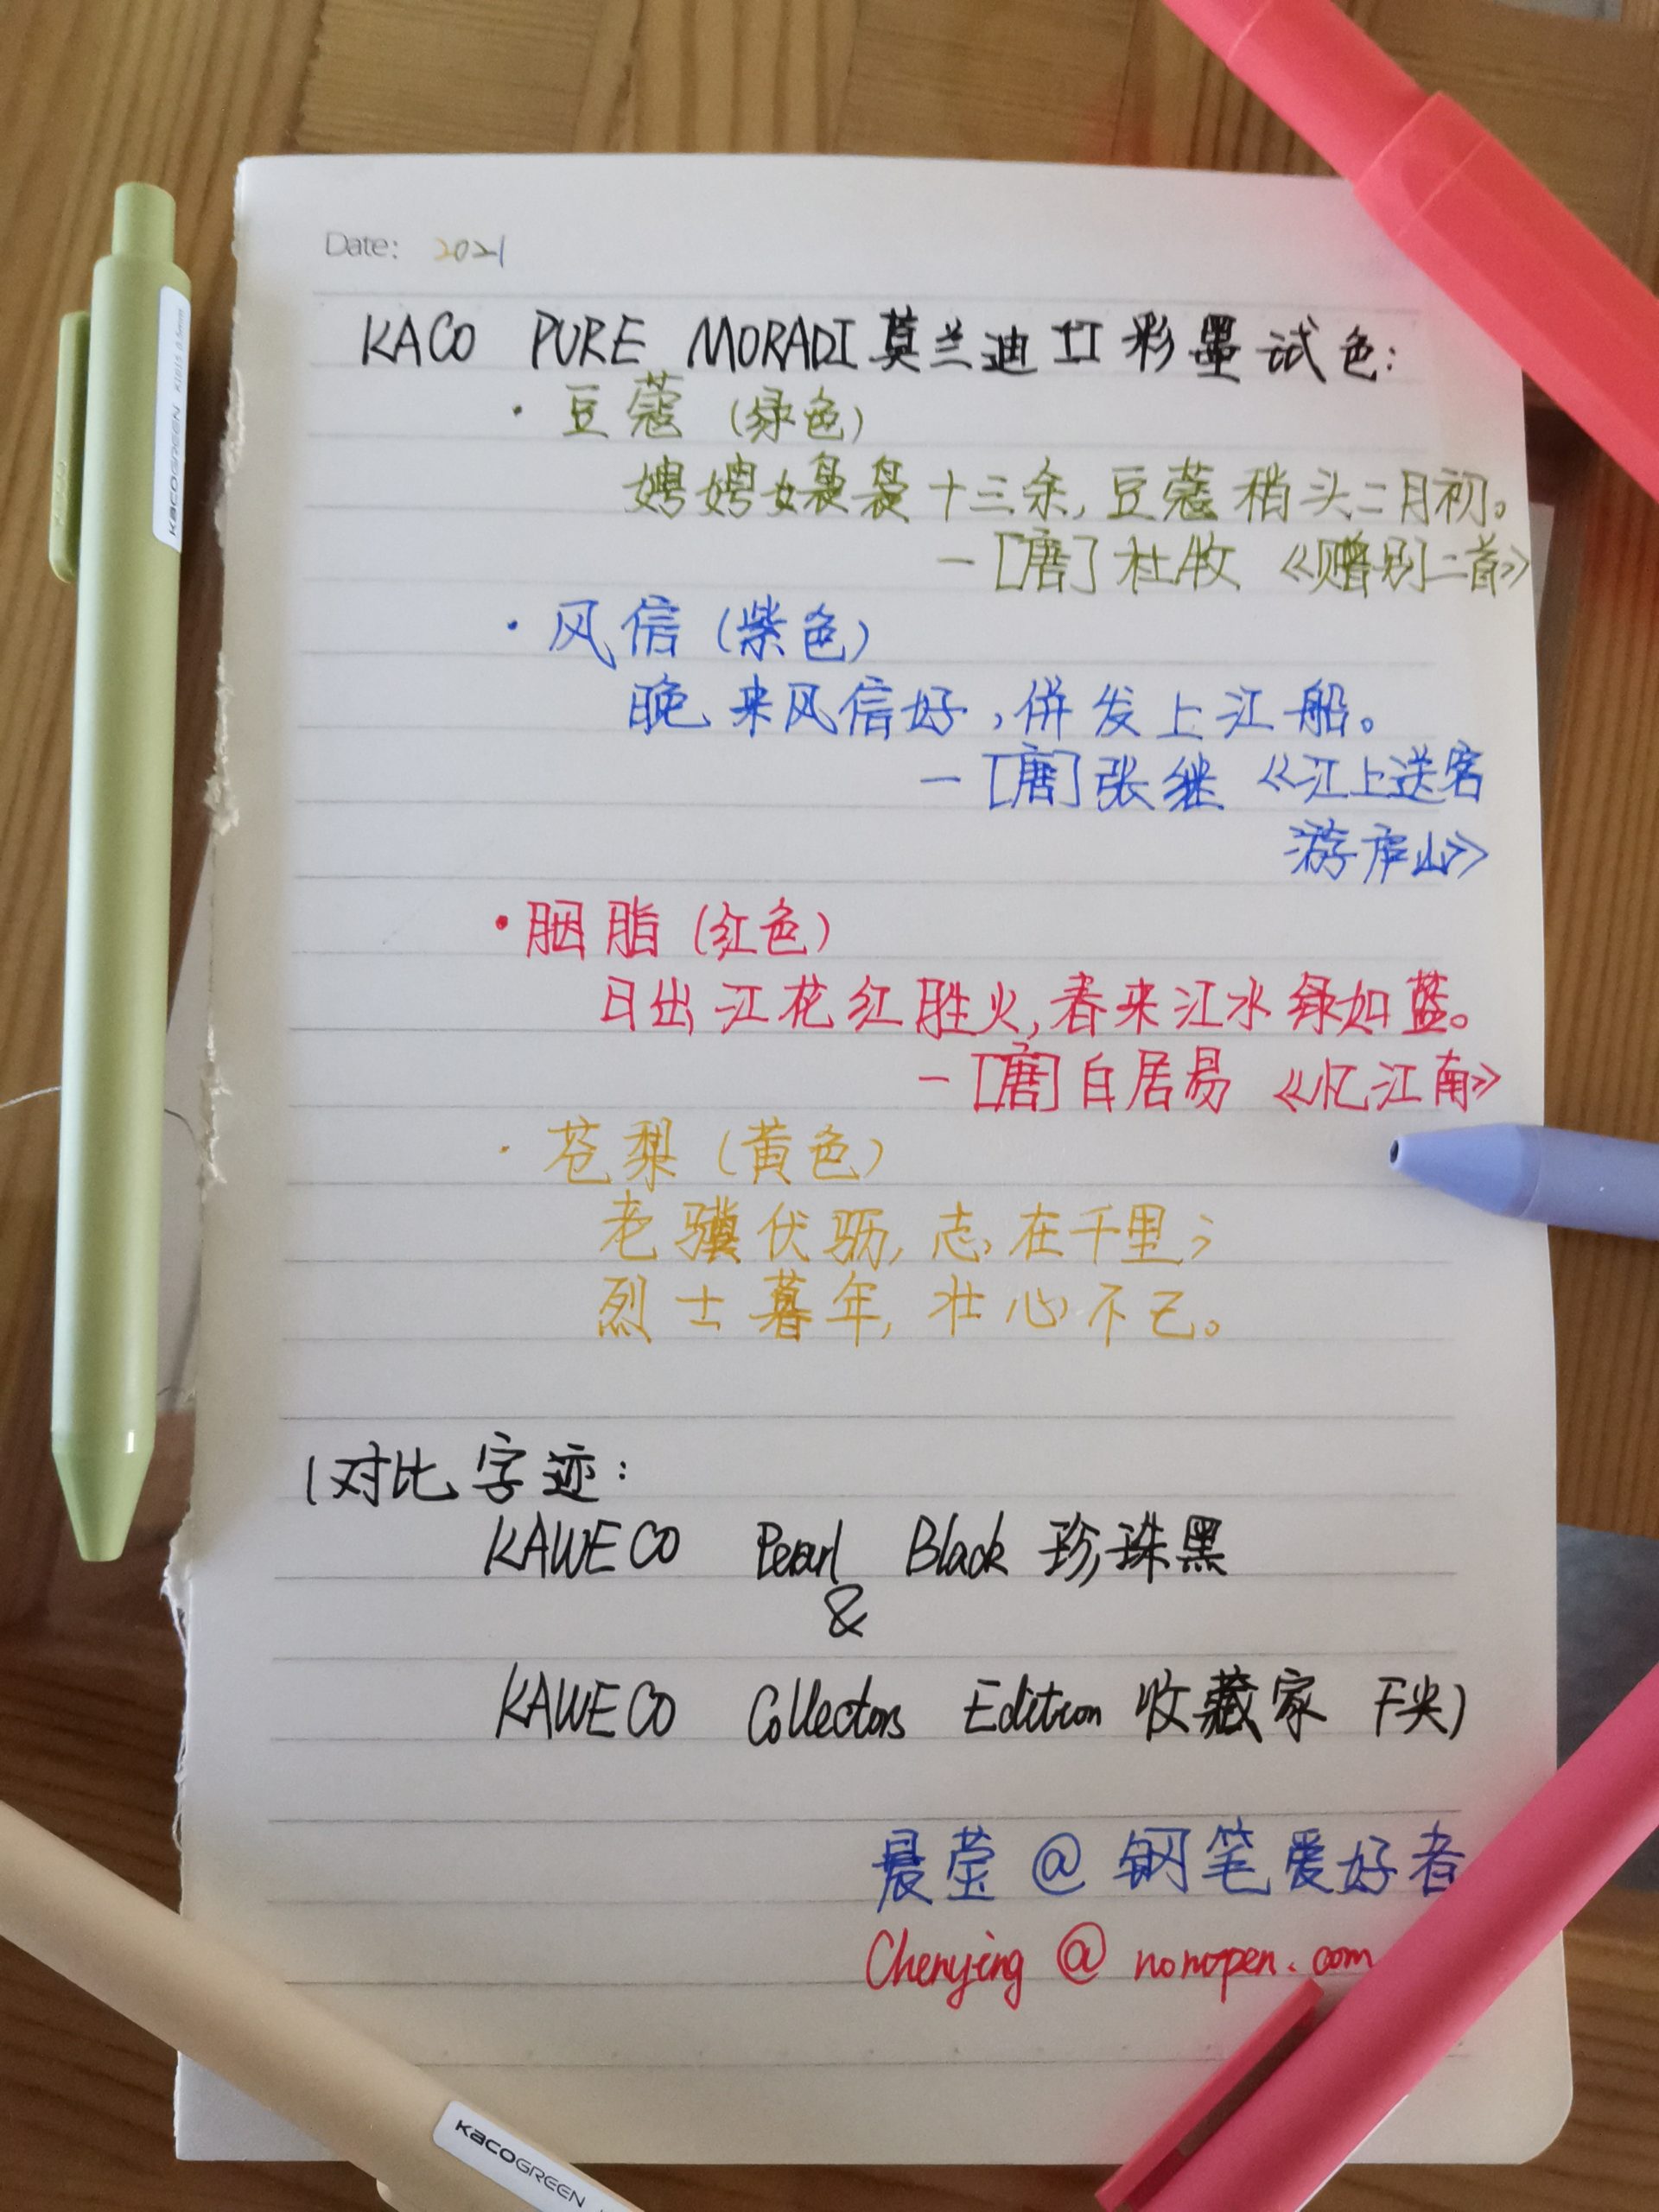 Date: 2021
KACO PURE MORADI 莫兰迪 II 彩墨试色:
· 豆蔻 (绿色)
娉娉嬝袅十三余, 豆蔻稍头二月初。
—[唐] 杜牧 《赠别二首》
· 风信 (紫色)
晚来风信好, 併发上江船。
—[唐] 张继 《江上送客
游庐山》
· 胭脂 (红色)
日出江花红胜火, 春来江水绿如蓝。
—[唐] 白居易 《忆江南》
· 苍梨 (黄色)
老骥伏骊, 志在千里;
烈士暮年, 壮心不已。
(对比字迹:
KAWECO Pearl Black 珍珠黑
&
KAWECO Collectors Edition 收藏家 F尖)
晨莹 @ 钢笔爱好者
Chenying @ nonopen.com
KACOGREEN K1015 0.5mm
KACO
KACOGREEN